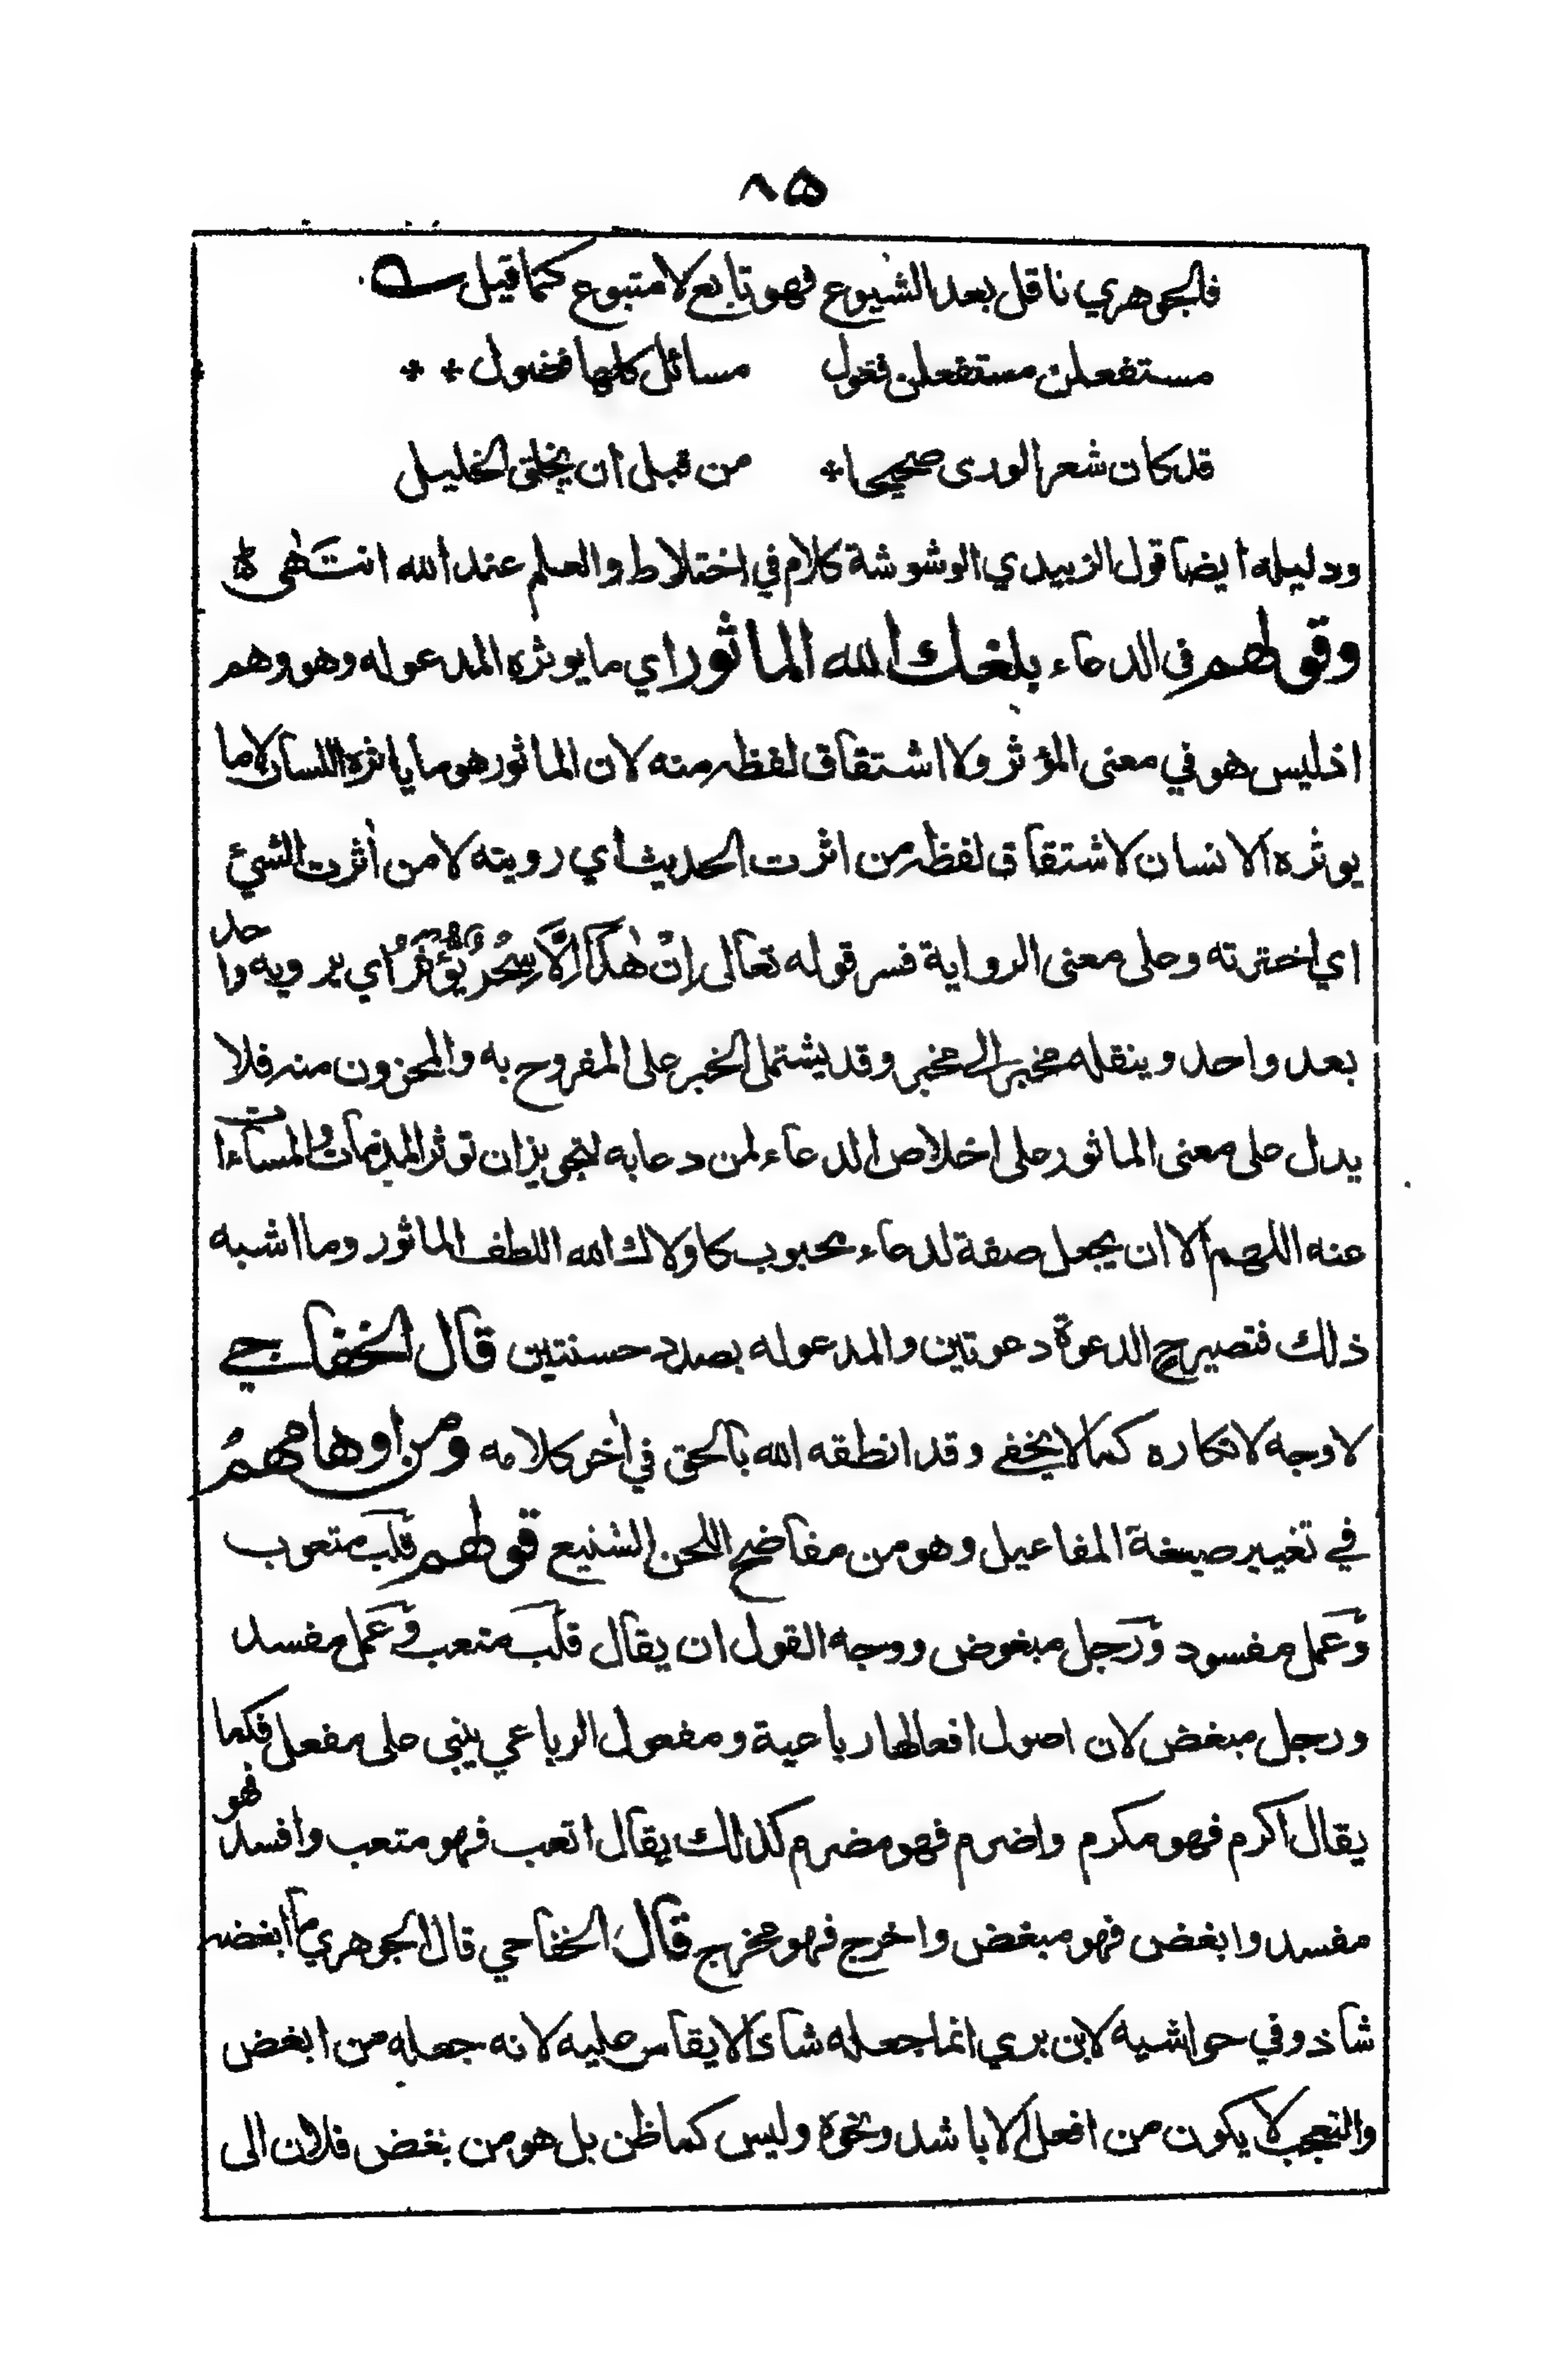 ٨٥
فالجوهري ناقل بعد الشيوع فهو تابع لا متبوع كما قيل
مستفعلن مستفعلن فعول مسائل كلها فضول * *
قد كان شعر الورى صحيحا * من قبل ان يخلق الخليل
ودليله ايضا قول الزبيدي الوشوشة كلام في اختلاط والعلم عند الله انتهى
وقولهم في الدعاء بلغك الله الماثور اي ما يوثره المدعو له وهو وهم
اذ ليس هو في معنى المؤثر ولا اشتقاق لفظه منه لان الماثور هو ما ياثره اللسان لا ما
يوثره الانسان لاشتقاق لفظه من اثرت الحديث اي رويته لا من أثرت الشيئ
اي اخترته وعلى معنى الرواية فسر قوله تعالى اِنْ هٰذَا اِلَّا سِحْرٌ يُّؤْثَرُ اي يرويه واحد
بعد واحد وينقله مخبر الى مخبر وقد يشتمل الخبر على المفروح به والمحزون منه فلا
يدل على معنى الماثور على اخلاص الدعاء لمن دعا به لتجويز ان توثر المذمات والمساءات
عنه اللهم الا ان يجعل صفة لدعاء محبوب كاولاك الله اللطف الماثور وما اشبه
ذلك فتصير ح الدعوة دعوتين والمدعو له بصدد حسنتين قال الخفاجي
لا وجه لانكاره كما لا يخفى وقد انطقه الله بالحق في اٰخر كلامه ومن اوهامهمُ
في تغيير صيغة المفاعيل وهو من مفاضح اللحن الشنيع قولهم قلب متعوب
وعمل مفسود ورجل مبغوض ووجه القول ان يقال قلب متعب وعمل مفسد
ورجل مبغض لان اصول افعالها رباعية ومفعول الرباعي يبنى على مفعل فكما
يقال اكرم فهو مكرم واضرم فهو مضرم كذلك يقال اتعب فهو متعب وافسد فهو
مفسد وابغض فهو مبغض واخرج فهو مخرج قال الخفاجي قال الجوهري ما ابغضه
شاذ وفي حواشيه لابن بري انما جعله شاذا لا يقاس عليه لانه جعله من ابغض
والتعجب لا يكون من افعل الا باشد ونحوه وليس كما ظن بل هو من بغض فلان الى